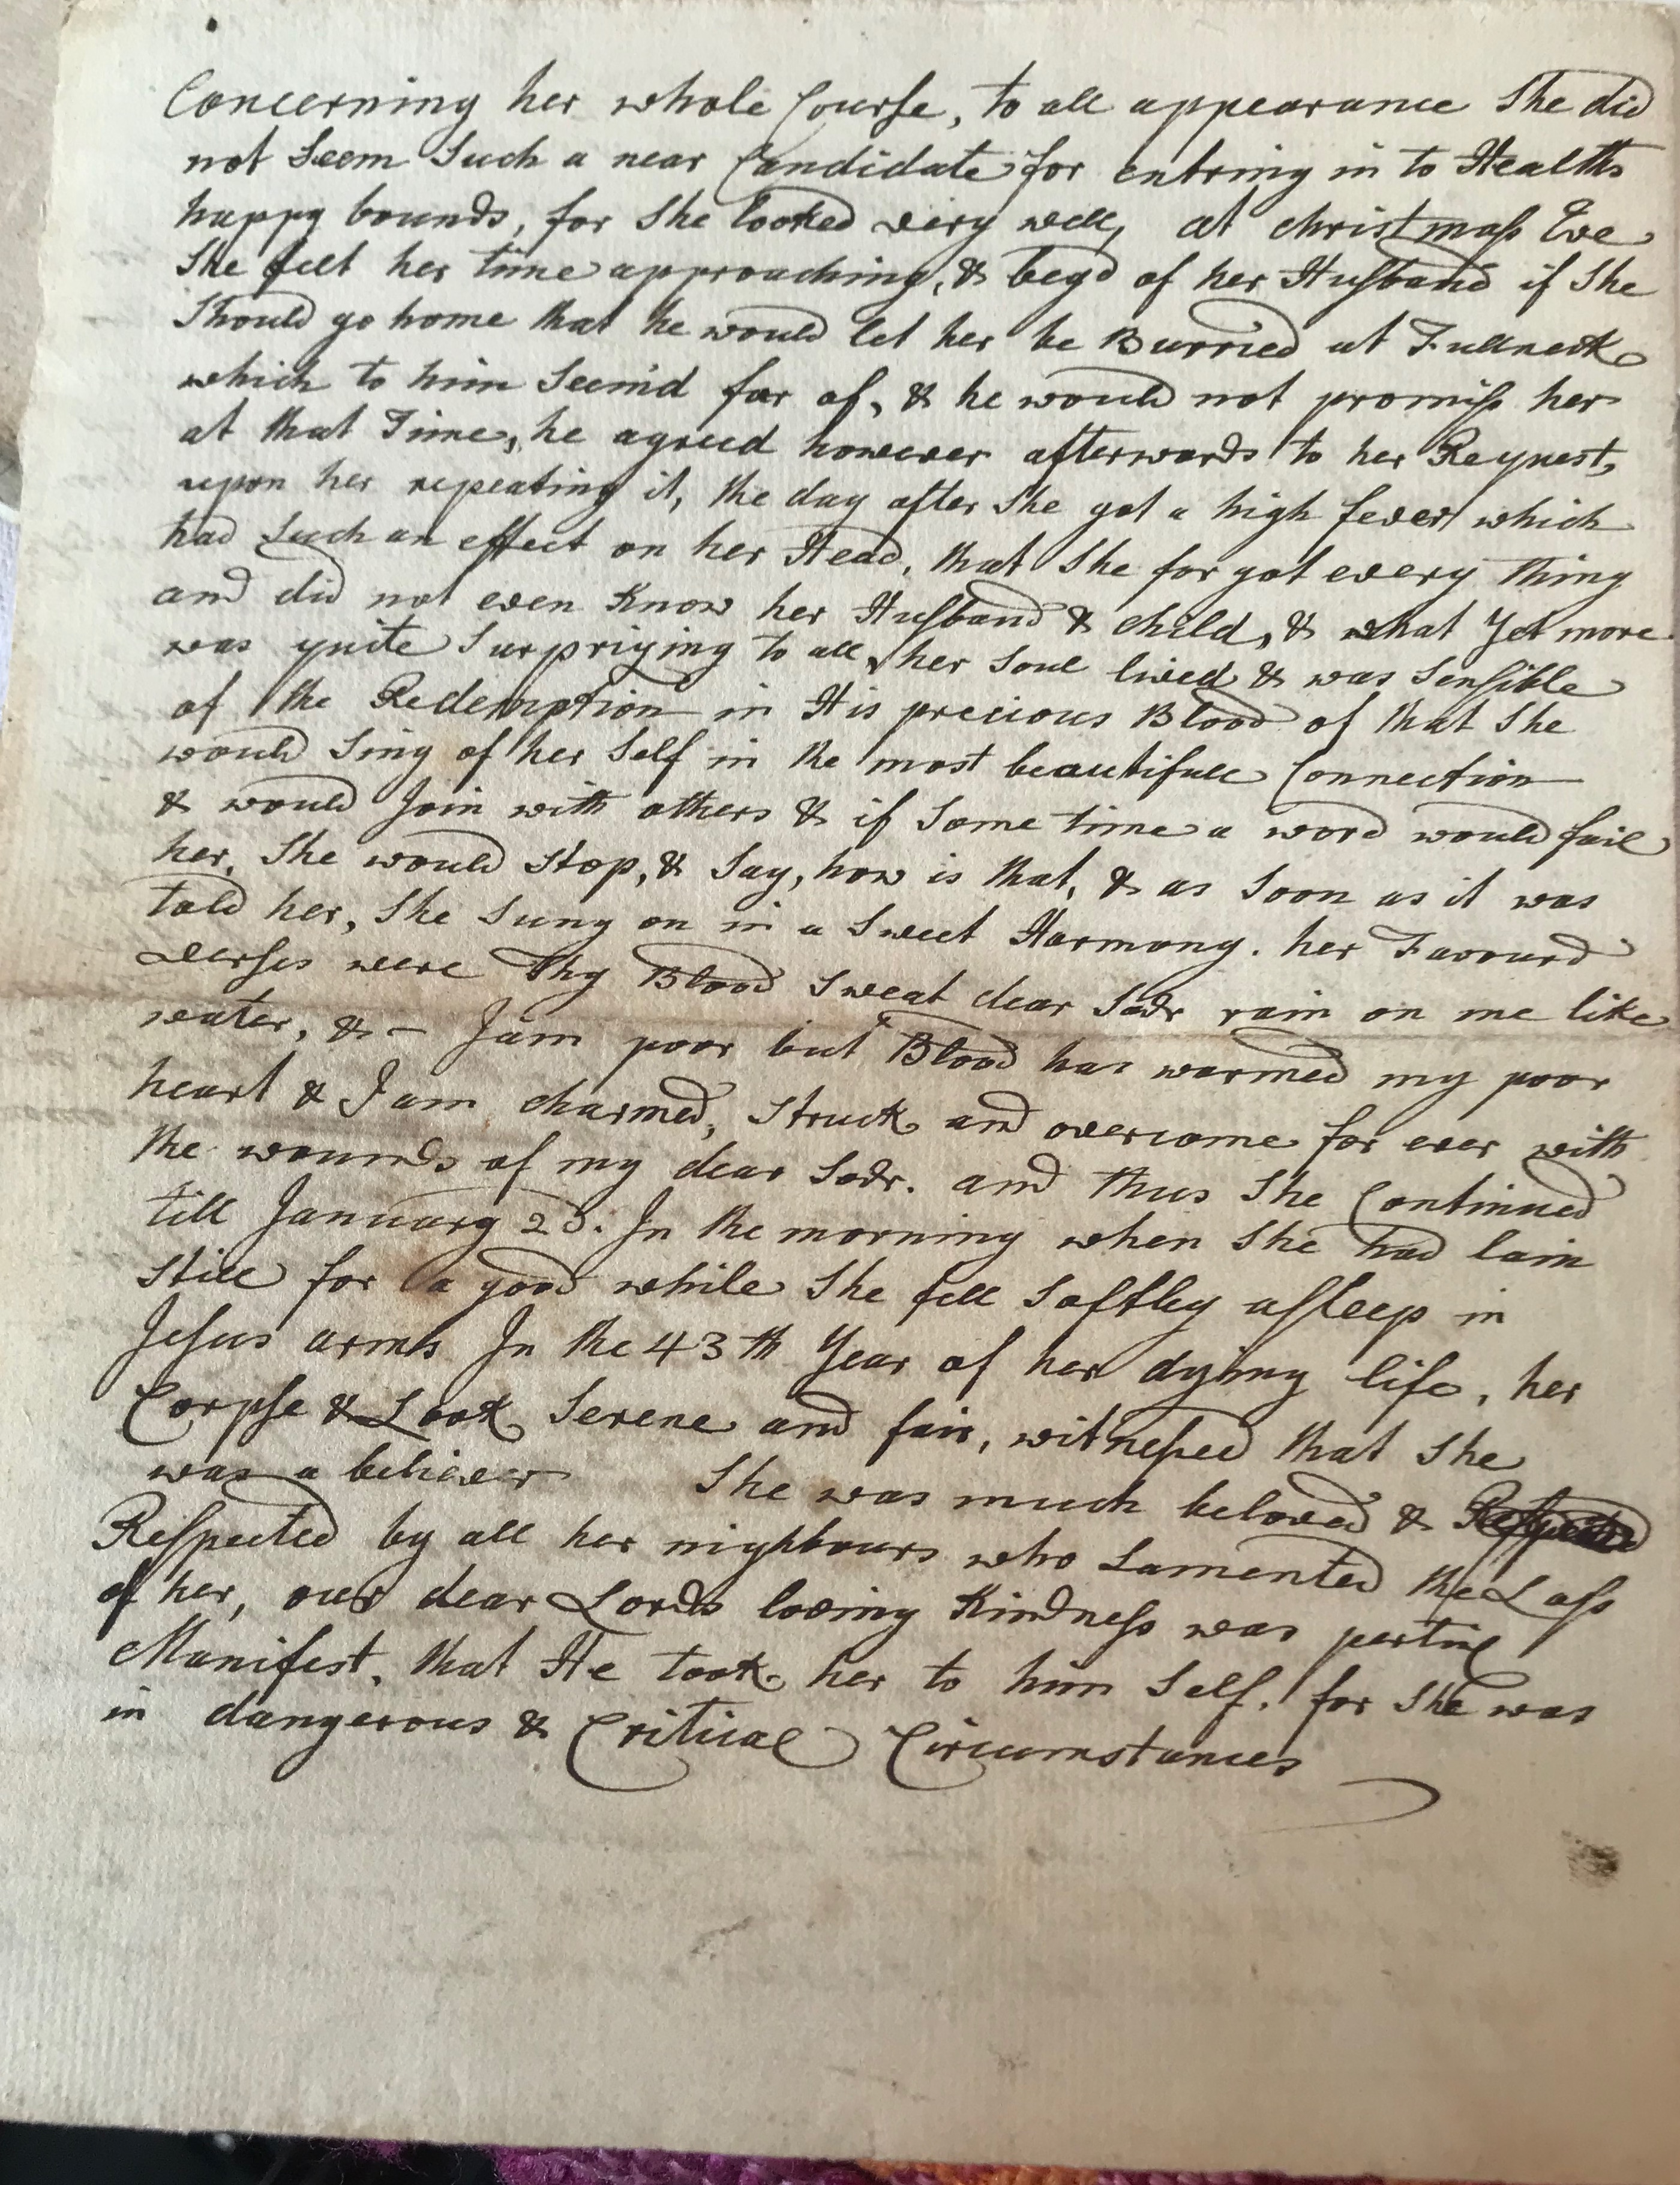 Concerning her whole Course, to all appearance She did
not Seem Such a near Candidate for entring in to Healths
happy bounds, for She looked very well, at christmass Eve
She felt her time approaching, & beg'd of her Husband if She
Should go home that he would let her be Burried at Fullneck
which to him Seem'd far of, & he would not promiss her
at that Time, he agreed however afterwards to her Request,
upon her repeating it, the day after She got a high fever which
had Such an effect on her Head, that She forgot every thing
and did not even Know her Husband & child, & what Yet more
was quite Surprizing to all, her Soul lived & was Sensible
of the Redemption in His precious Blood of that She
would Sing of her Self in the most beautifull Connection
& would Join with others & if Some time a word would fail
her, She would Stop, & Say, how is that, & as Soon as it was
told her, She Sung on in a Sweet Harmony. her Favourd
verses were Thy Blood Sweat dear Sadr rain on me like
water, & — I am poor but Blood has warmed my poor
heart & I am charmed, Struck and overcome for ever with
the wounds of my dear Sadr. and thus She Continued
till January 23. In the morning when She had lain
Still for a good while She fell Softley asleep in
Jesus arms In the 43th Year of her dying life, her
Corpse & Look Serene and fair, witnessed that She
was a believer She was much beloved &
Respected by all her nighbours who Lamented the Loss
of her, our dear Lords loving Kindness was
Manifest, that He took her to him Self, for She was
in dangerous & Critical Circumstances